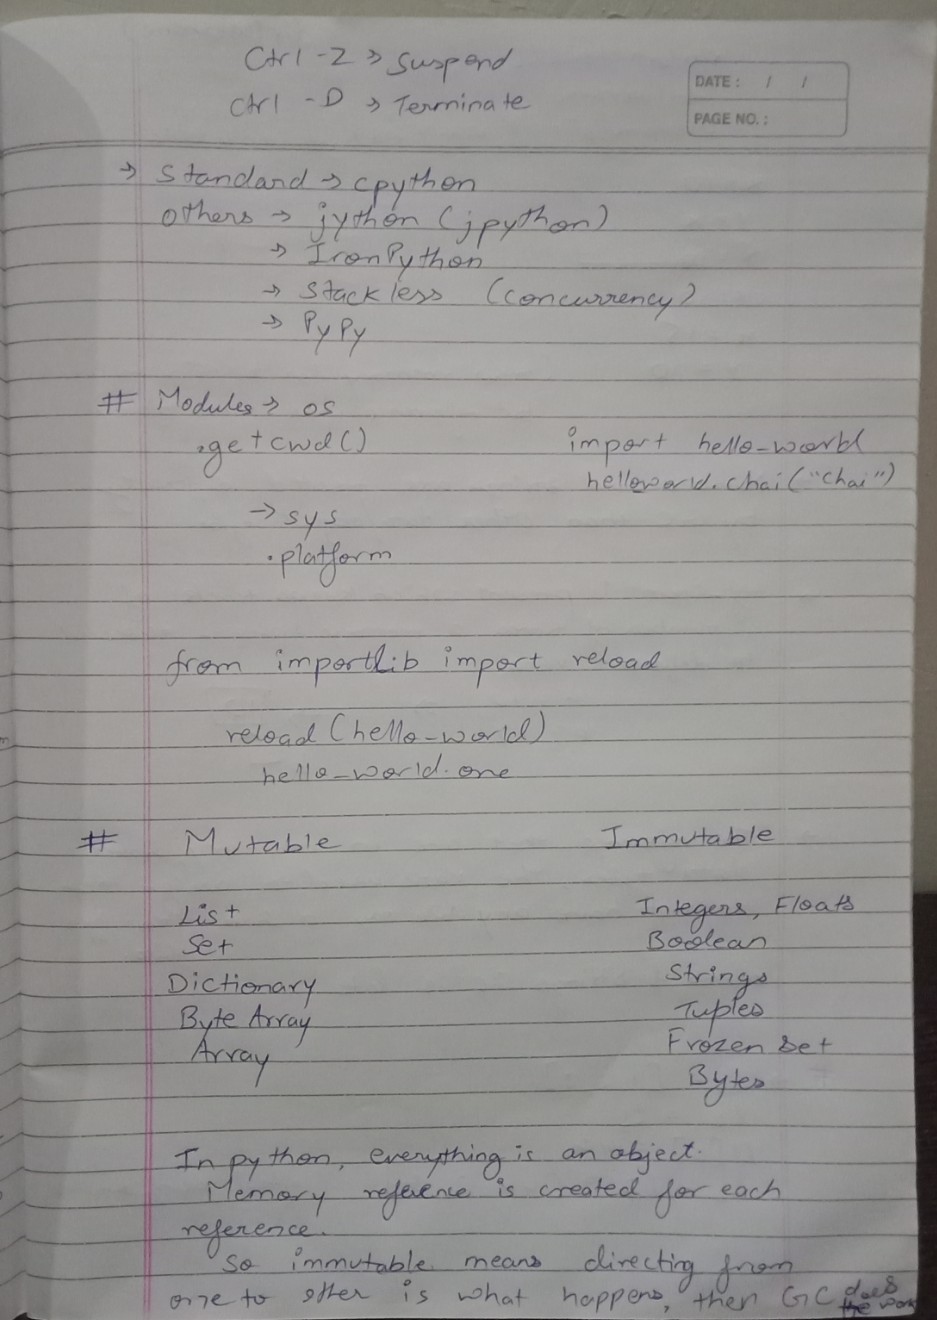 Ctrl -Z → Suspend
Ctrl - D → Terminate
DATE : / /
PAGE NO. :
→ Standard → cpython
others → jython (jpython)
→ IronPython
→ Stackless (concurrency)
→ PyPy
# Modules → os
.getcwd()
import hello-world
helloworld.chai("chai")
→ sys
.platform
from importlib import reload
reload (hello-world)
hello-world.one
# Mutable Immutable
List Integers, Floats
Set Boolean
Dictionary Strings
Byte Array Tuples
Array Frozen Set
Bytes
In python, everything is an object.
Memory reference is created for each
reference.
So immutable means directing from
one to other is what happens, then GC does
the work